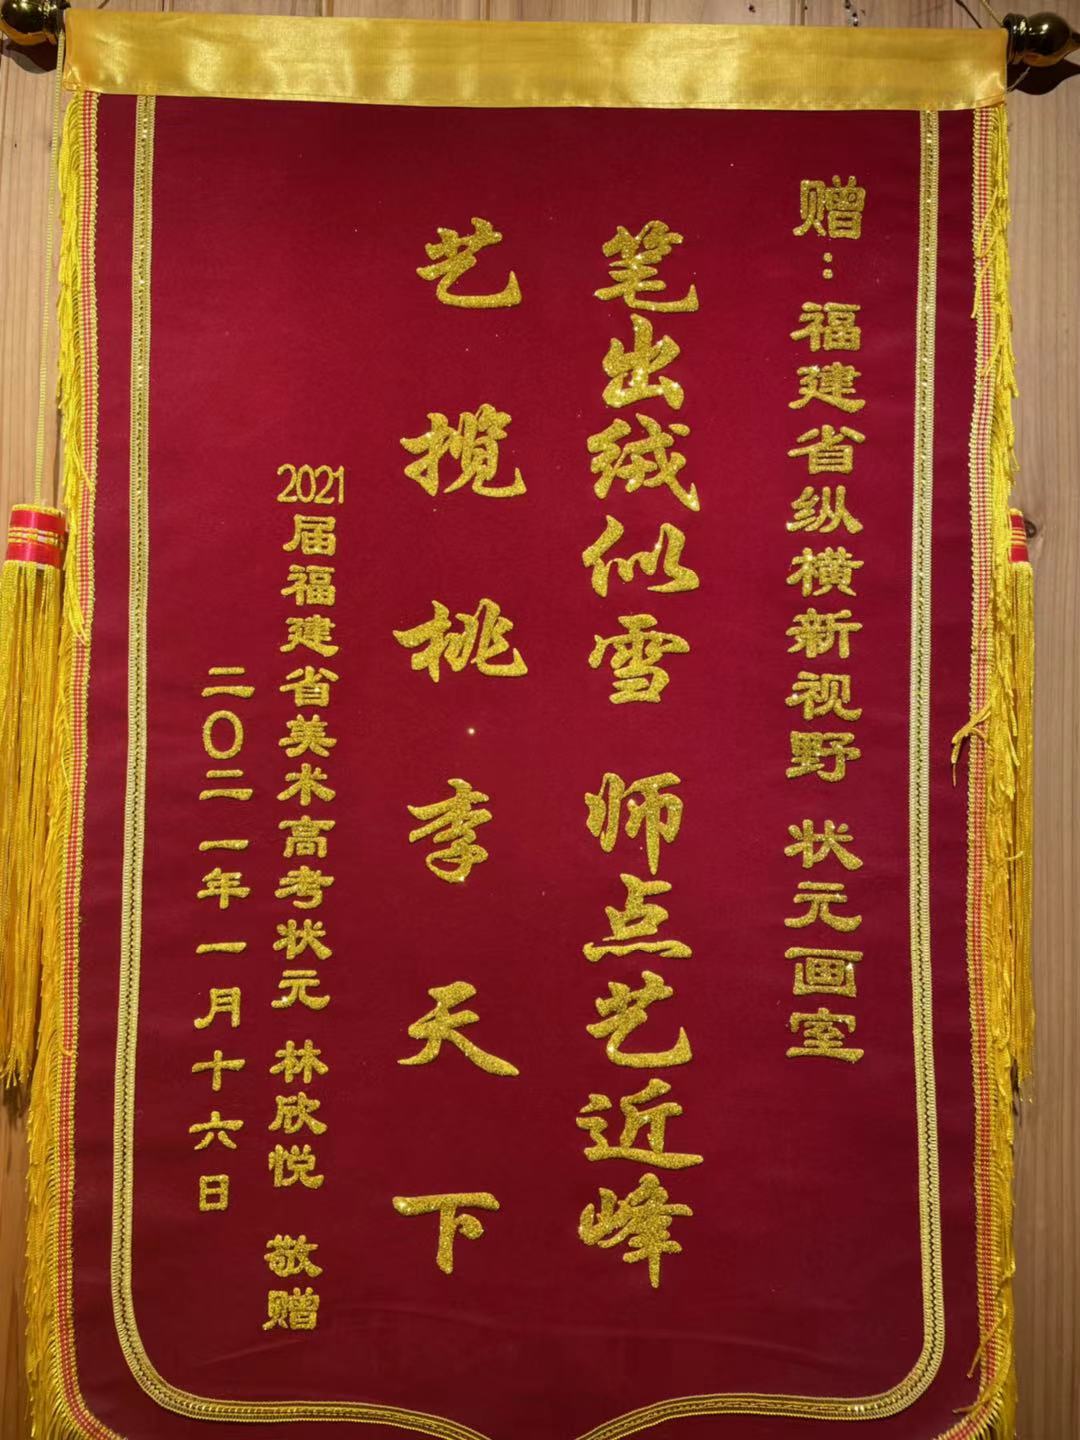 赠：福建省纵横新视野 状元画室
笔出绒似雪 师点艺近峰
艺揽桃李天下
2021届福建省美术高考状元 林欣悦 敬赠
二〇二一年一月十六日